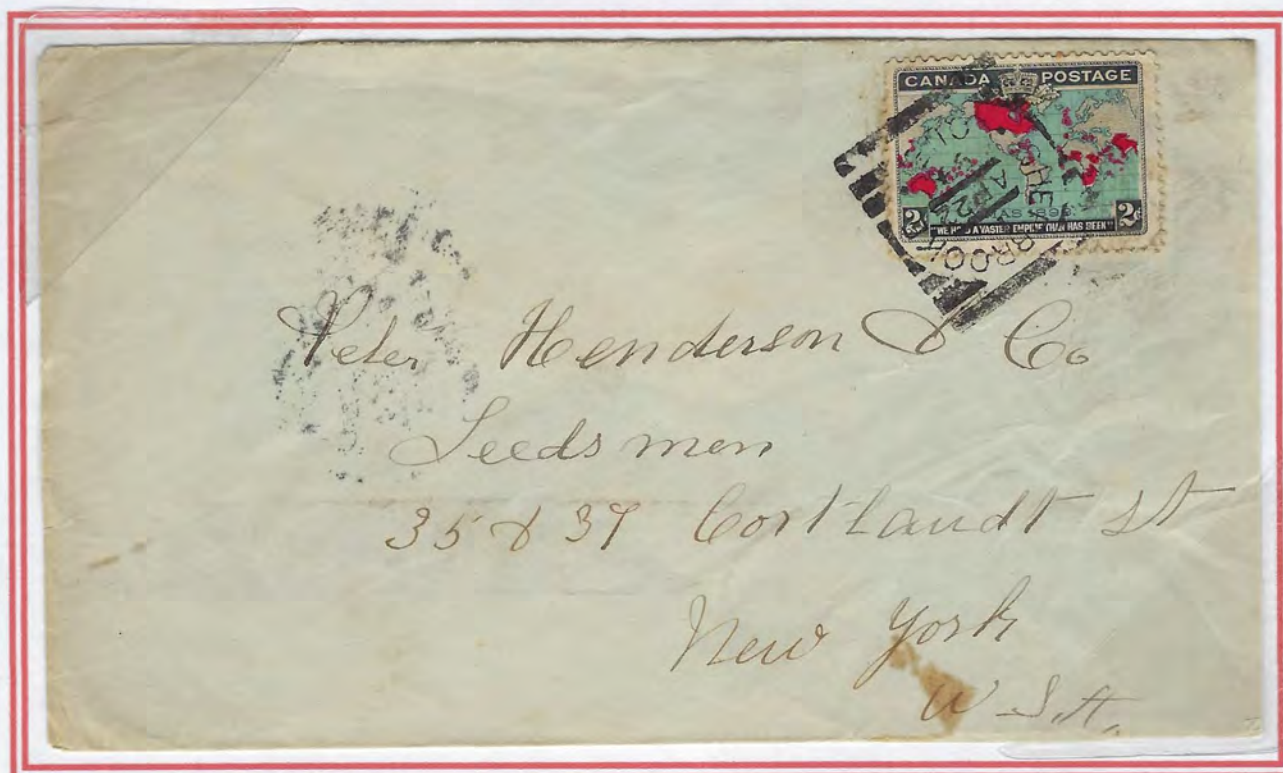 CANADA POSTAGE
XMAS 1898
2c 2c
"WE HOLD A VASTER EMPIRE THAN HAS BEEN"
SHERBROOKE
AP 2
01
Peter Henderson & Co
Seedsmen
35 & 37 Cortlandt St
New York
U.S.A.